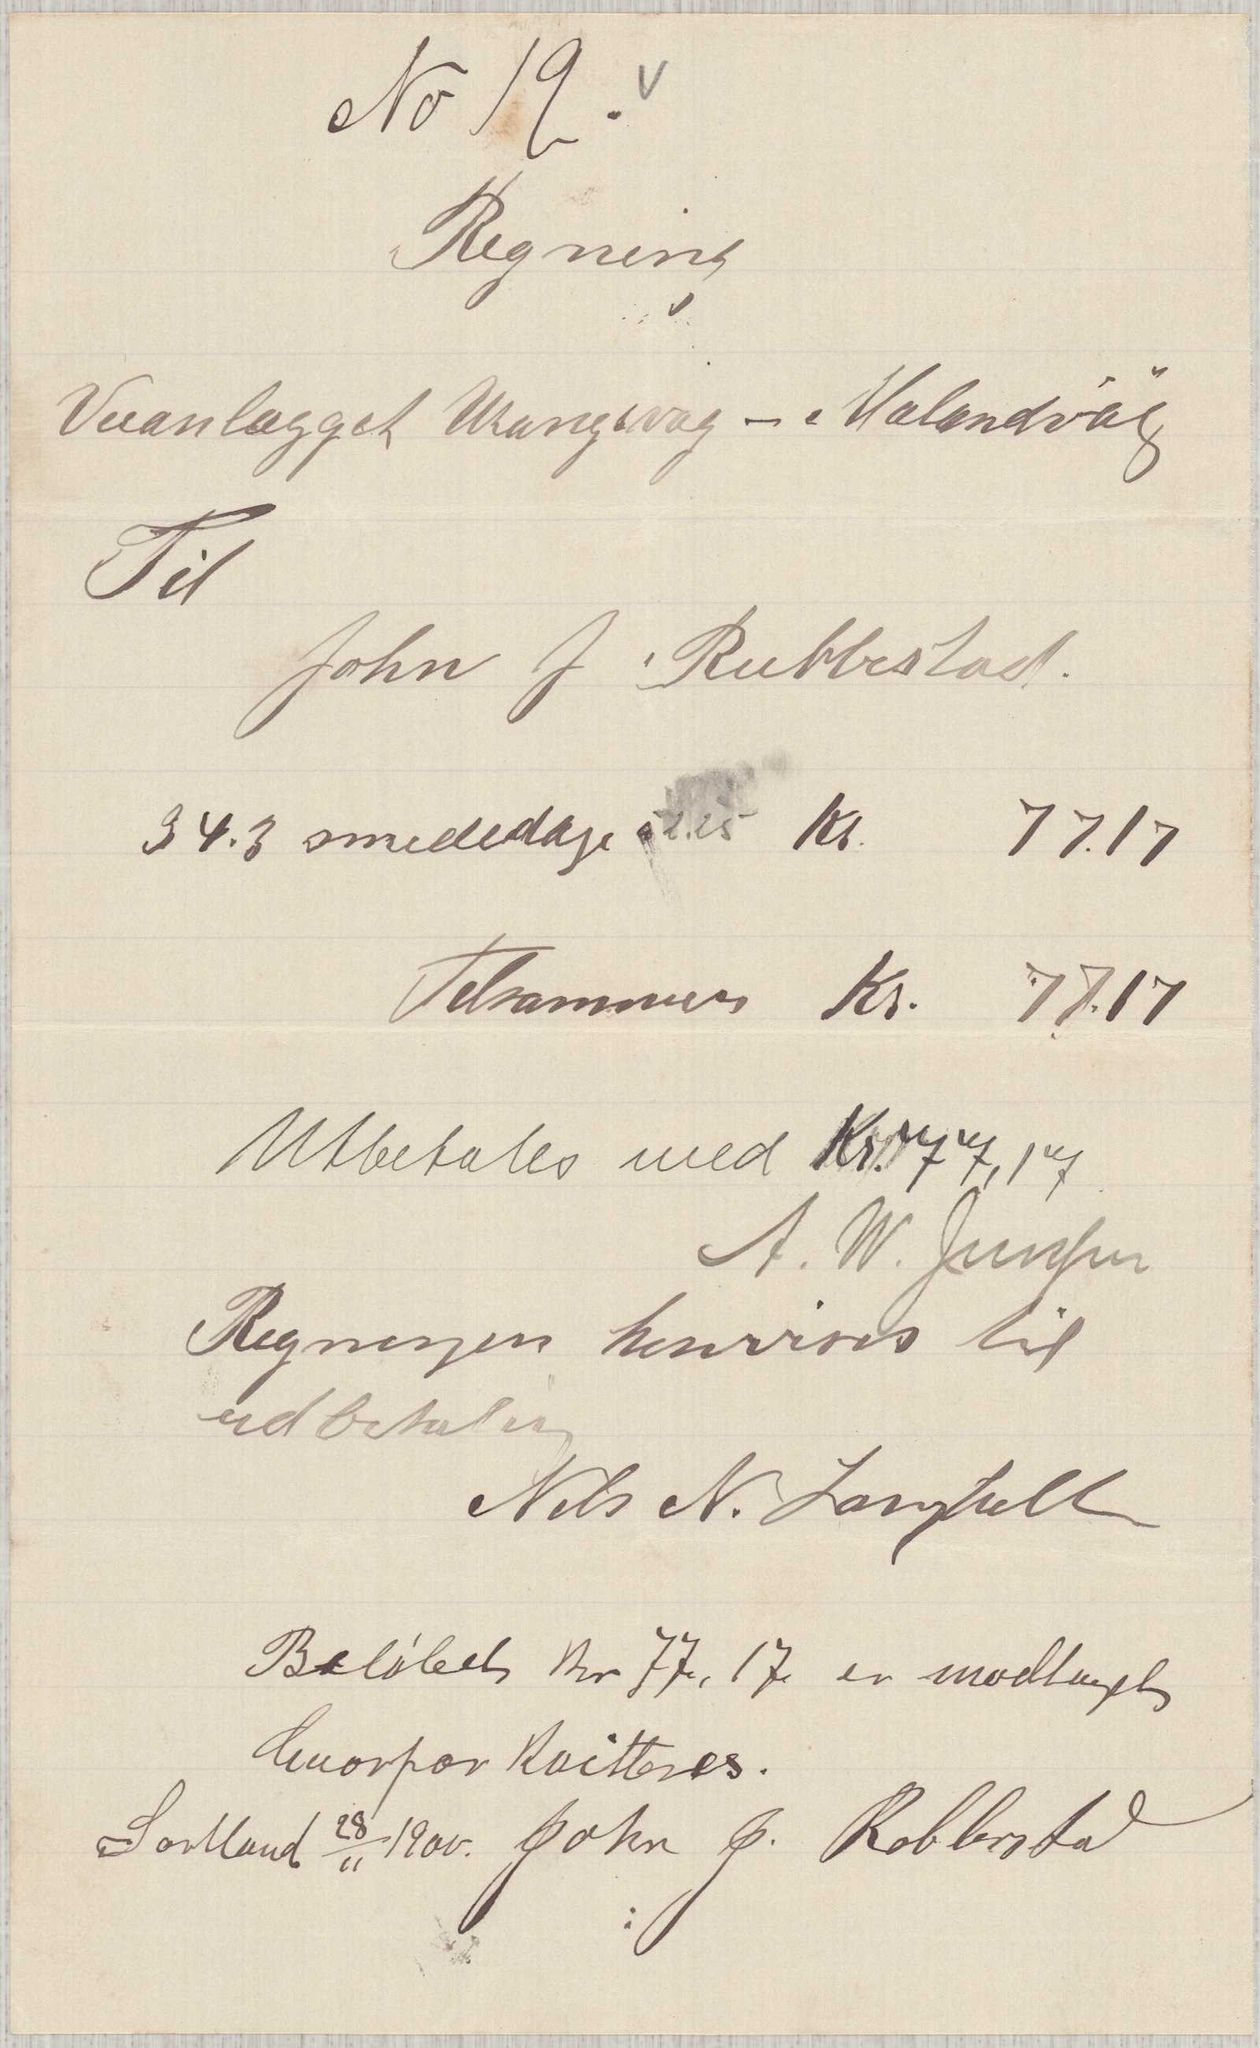 No 12. v
Regning
Veianlægget Urangsvag - Malandvåg
Til
John J Rubbestad.
34.3 smededage a 2.25 Kr. 77.17
Tilsammen Kr. 77.17
Utbetales med Kr. 77,17
A. W.
Regningen henvises til
udbetaling
Nels N. Langfelt
Beløbet Kr 77,17 er modtaget
hvorfor kvitteres.
Sortland 28/11 1900. John J. Robberstad